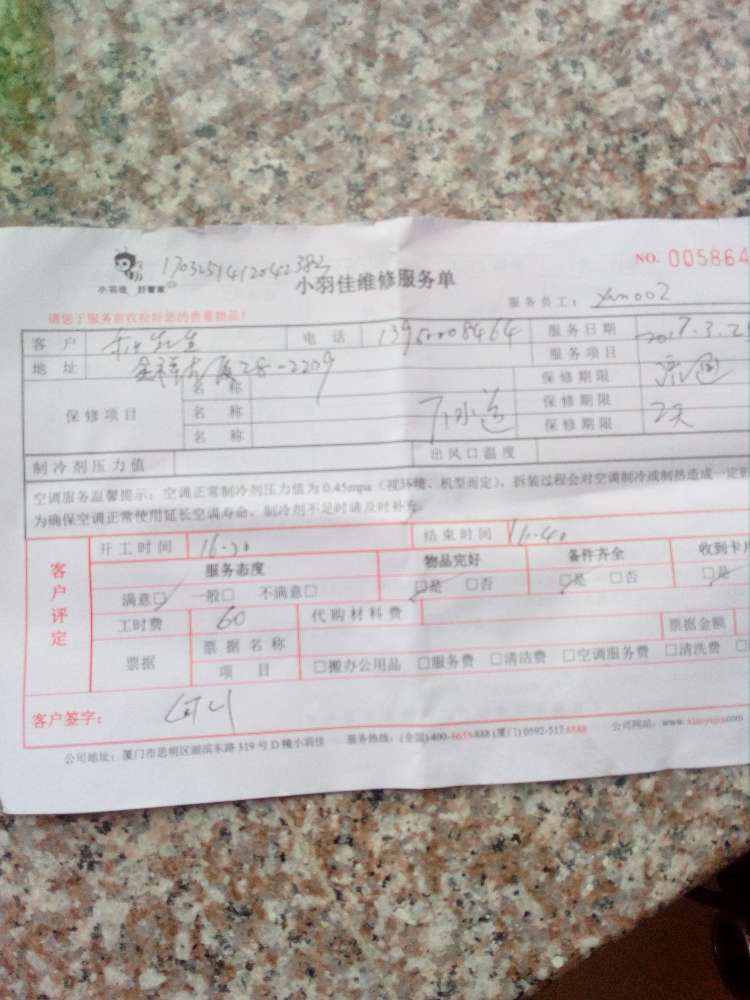 小羽佳 好管家
1703251412042382
小羽佳维修服务单
NO. 005864
请您于服务前收检好您的贵重物品!
服务员工: xm002
客户 先生 电话 服务日期 2017.3.2
地址 金祥大厦28-2209 服务项目
保修项目 名称 下水道 保修期限
名称 保修期限
名称 保修期限 2天
制冷剂压力值 出风口温度
空调服务温馨提示:空调正常制冷剂压力值为0.45mpa(视环境、机型而定),拆装过程会对空调制冷或制热造成一定
为确保空调正常使用延长空调寿命,制冷剂不足时请及时补充。
客户评定
开工时间 结束时间
服务态度 物品完好 备件齐全 收到卡片
满意□ 一般□ 不满意□ □是 □否 □是 □否 □是
工时费 60 代购材料费
票据 票据名称 票据金额
项目 □搬办公用品 □服务费 □清洁费 □空调服务费 □清洗费
客户签字:
公司地址:厦门市思明区湖滨东路319号D幢小羽佳 服务热线:(全国)400-8655888 (厦门)0592-5178888 公司网站:www.xiaoyujia.com